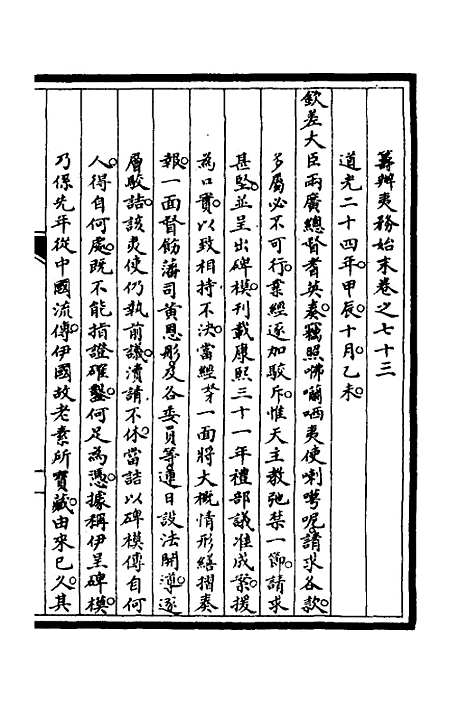 籌辦夷務始末卷之七十三
道光二十四年甲辰十月乙未
欽差大臣兩廣總督耆英奏竊照咈囒哂夷使喇𠸄呢請求各款
多屬必不可行業經逐加駁斥惟天主教弛禁一節請求
甚堅並呈出碑模刊載康熙三十一年禮部議准成案援
為口實以致相持不決當經 一面將大概情形繕摺奏
報一面督飭藩司黃恩彤及各委員等連日設法開導逐
層駁詰該夷使仍執前議瀆請不休當詰以碑模傳自何
人得自何處既不能指證確鑿何足為憑據稱伊呈碑模
乃係先年從中國流傳伊國故老素所寶藏由來已久其